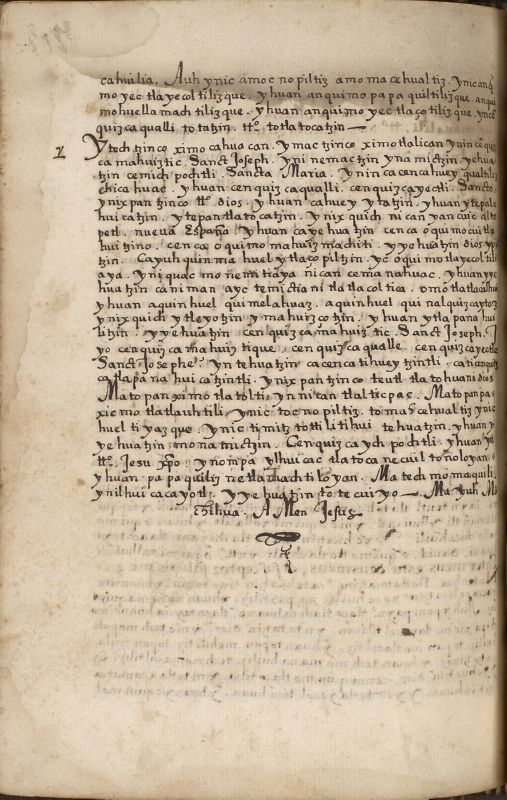 cahuilia. Auh ynic amo c nopiltiz amo macehualtiz. ynic anq
mo yectlayecoltilizque. yhuan anquimo papaquiltilizque. anqui
mohuellamachtilizque. yhuan anquimo yectlaçotilizque. yn
quizcaqualli totatzin. tto. totlatocatzin —
1 Ytechtzinco ximocahuacan. ymactzinco ximotlalican yn in
camahuiztic. Sanct Joseph. yni nemactzin yna mictzin. yehua
tzin cemichpochtli. Sancta Maria. yn in cacencahuey
chicahuac. yhuan cenquizcaqualli. cenquizcayectli. Sancto
ynixpantzinco tto dios. yhuan cahuey ytatzin. yhuan ytepale
huicatzin. ytepantlatocatzin. ynixquich nican yancuic alte
petl. nueva España. yhuan ca yehuatzin cenca oquimocuitla
huitzino. cenca oquimomahuizmachiti. yyohuatzin dios
tzin. Ca yuhquinma huel ytlaçopiltzin. yc oquimotlayecoltili
aya. yniquac monemitiaya nican cemanahuac. yhuan yye
huatzin caniman ayc temictiani tlatlacoltica. omotlatlacalhui
yhuan aquin huel quimelahuaz. aquin huel qui nalquizcaytoz
ynixquich ytleyotzin ymahuizcotzin. yhuan ytlapanahui
litzin. yyehuatzin cenquizcamahuiztic. Sanct Joseph.
yo cenquizcamahuiztique. cenquizcaqualle. cenquizcayectle
Sanct Josephe. yn tehuatzin cacenca tihueytzintli. ca ticenquiz
ca tlapanahuicatzintli. ynixpantzinco teutl tlatohuani dios
Ma topanximotlatolti yn nican tlalticpac. Ma topanpa
xicmotlatlauhtili. ynic tocnopiltiz. tomacehualtiz ynic
huel tiyazque. ynic timitztottilitihui tehuatzin. yhuan y
yehuatzin monamictzin. Cenquizca ychpochtli. yhuan
tto. Jesu xpo. ynompa ylhuicac tlatocanecuiltonoloyan.
yhuan papaquiliz netlamachtiloyan. Ma techmomaquili
ynilhuicacayotl. yyehuatzin totecuiyo — Ma yuh Mo
chihua. AMen Jesus